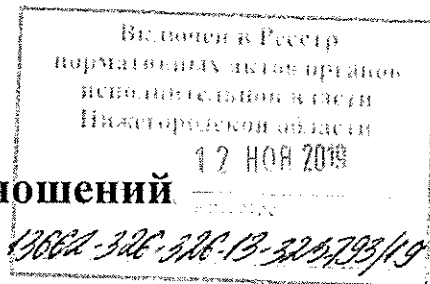 Включен в Реестр
нормативных актов органов
исполнительной власти
Нижегородской области
12 НОЯ 2019
ношений
13662-326-326-13-325793/19